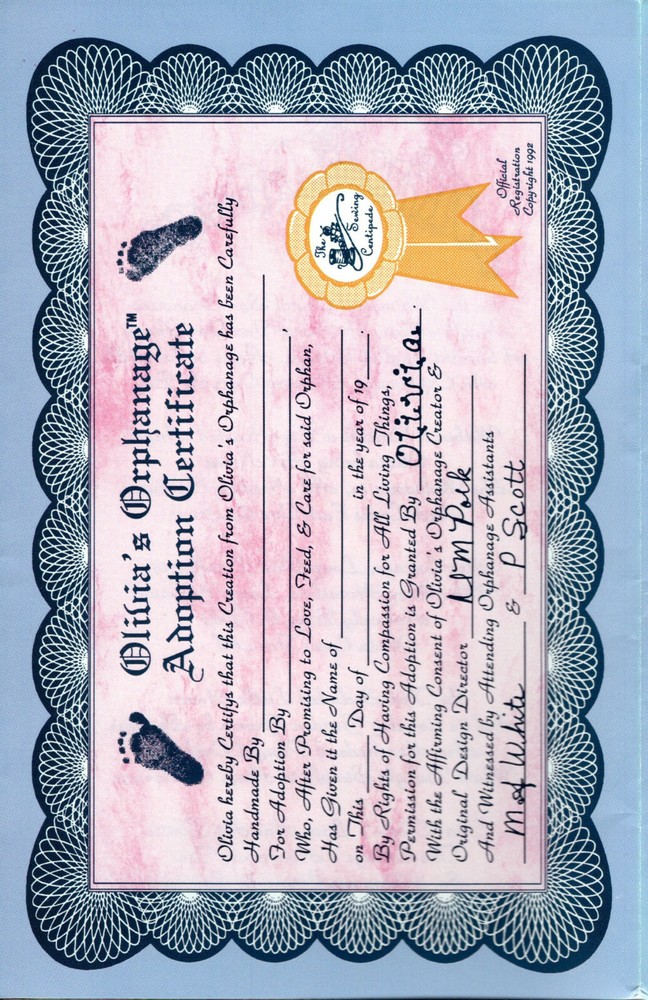 Olivia's Orphanage™
Adoption Certificate
Olivia hereby Certifys that this Creation from Olivia's Orphanage has been Carefully
Handmade By
For Adoption By ,
Who, After Promising to Love, Feed, & Care for said Orphan,
Has Given it the Name of
on This Day of in the year of 19 .
By Rights of Having Compassion for All Living Things,
Permission for this Adoption is Granted By Olivia .
With the Affirming Consent of Olivia's Orphanage Creator &
Original Design Director M Polk
And Witnessed by Attending Orphanage Assistants
White & P Scott
The
Sewing
Centipede
Official
Registration
Copyright 1992